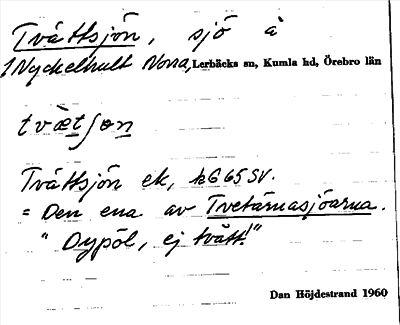 Tvättsjön, sjö å
1 Nyckelhult Norra, Lerbäcks sn, Kumla hd, Örebro län
tvæ̀tʃøn
Tvättsjön ek, bG65SV.
= Den ena av Tvetärnasjöarna.
"Dypöl, ej tvätt!"
Dan Höjdestrand 1960